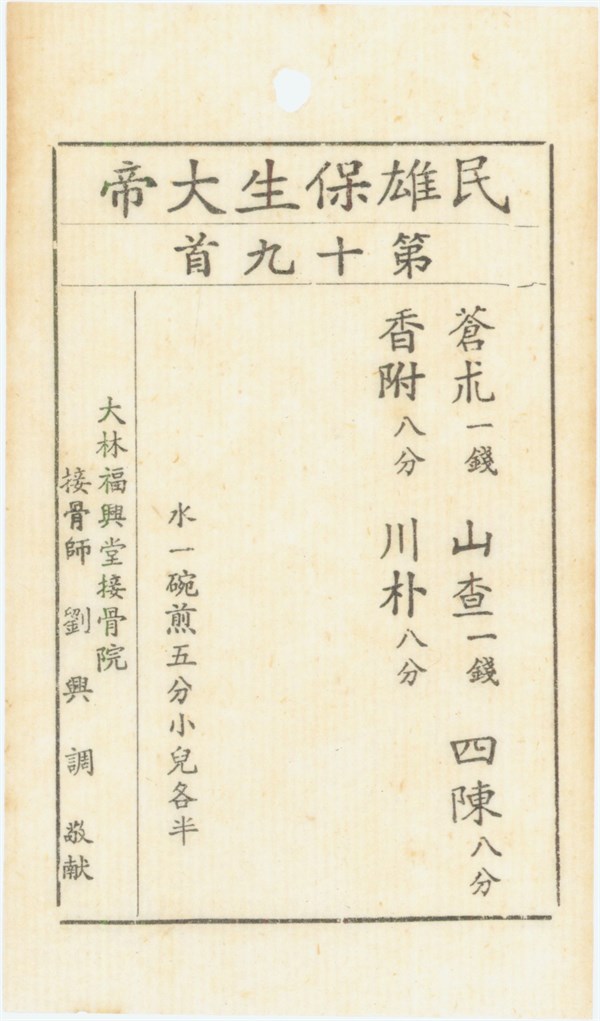 民雄保生大帝
第十九首
蒼朮一錢 山查一錢 四陳八分
香附八分 川朴八分
水一碗煎五分小兒各半
大林福興堂接骨院
接骨師 劉興調 敬献